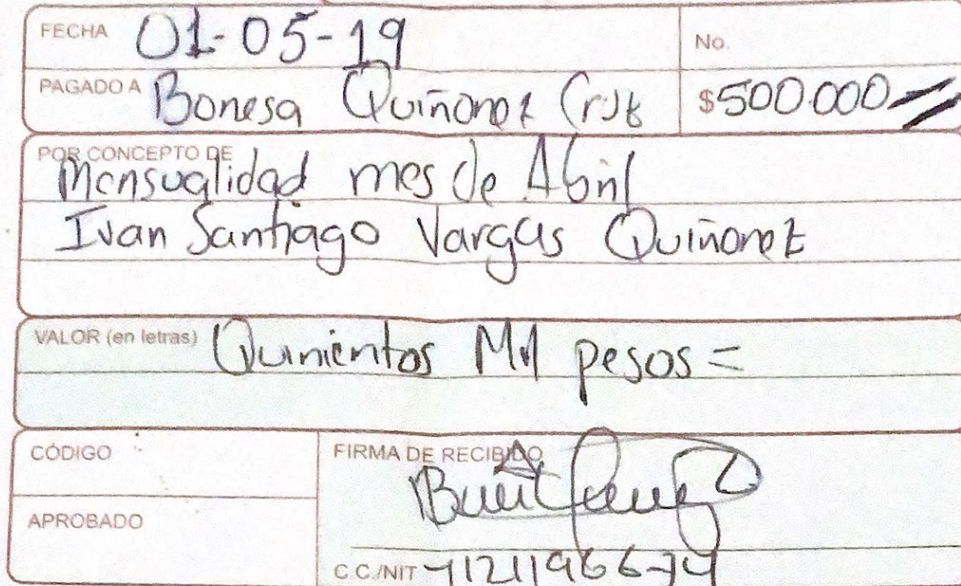 FECHA 01-05-19
No.
PAGADO A Bonesa Quiñonez Cruz
$500.000
POR CONCEPTO DE
Mensualidad mes de Abril
Ivan Santiago Vargas Quiñonez
VALOR (en letras) Quinientos Mil pesos =
CÓDIGO
FIRMA DE RECIBIDO
APROBADO
C.C./NIT